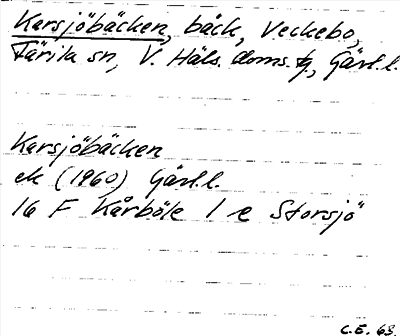 Karsjöbäcken, bäck, Veckebo,
Färila sn, V. Häls. doms. tg, Gävl.l.
Karsjöbäcken
ek (1960) Gävl.l.
16 F Kårböle 1 e Storsjö
C.E. 63.